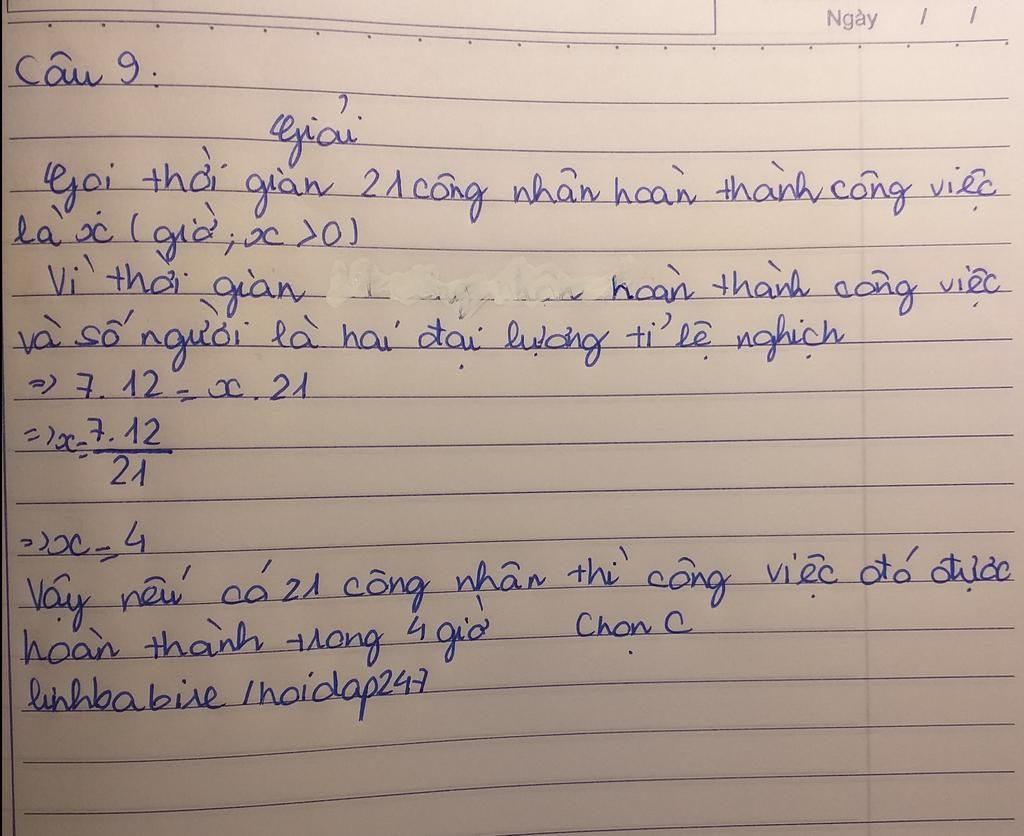 Ngày / /
Câu 9.
Giải
Gọi thời gian 21 công nhân hoàn thành công việc
là x (giờ; x >0)
Vì thời gian hoàn thành công việc
và số người là hai đại lượng tỉ lệ nghịch
=> 7.12 = x.21
=> x = 7.12 / 21
=> x = 4
Vậy nếu có 21 công nhân thì công việc đó được
hoàn thành trong 4 giờ Chọn C
linhbabise /hoidap247